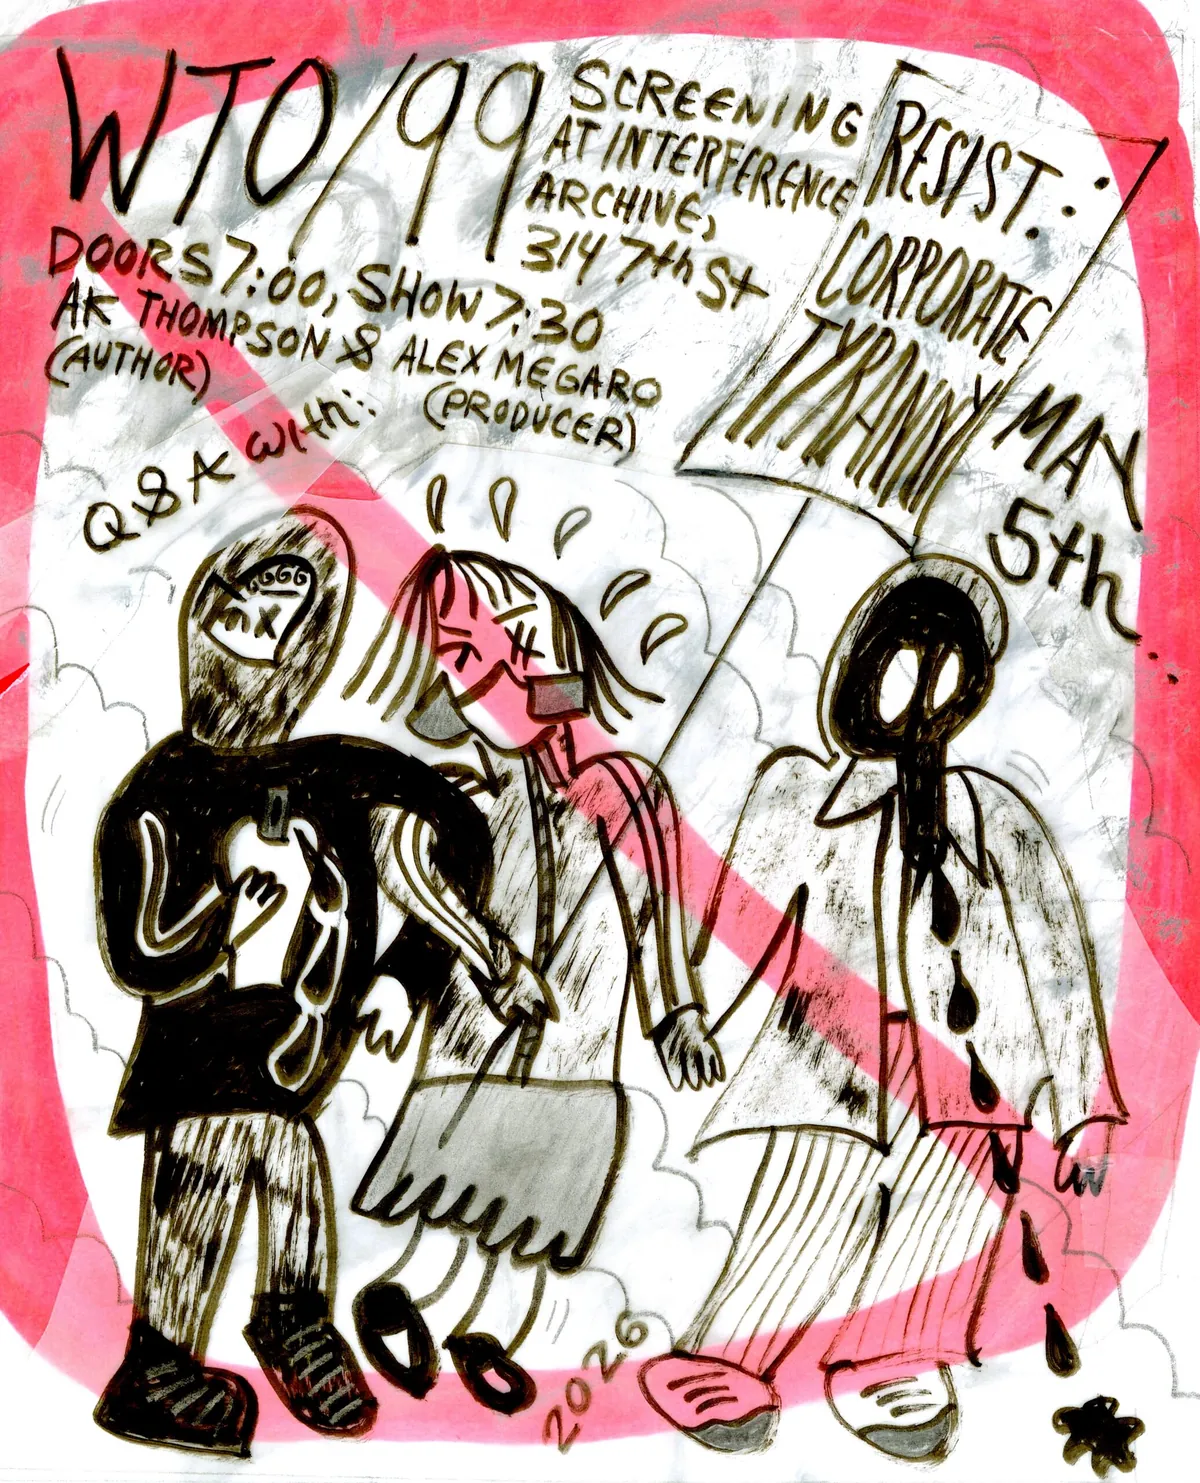 WTO/99
SCREENING
AT INTERFERENCE
ARCHIVE,
314 7th St
DOORS 7:00, SHOW 7:30
AK THOMPSON & ALEX MEGARO
(AUTHOR) (PRODUCER)
Q & A with:
RESIST:
CORPORATE
TYRANNY
MAY
5th
2026